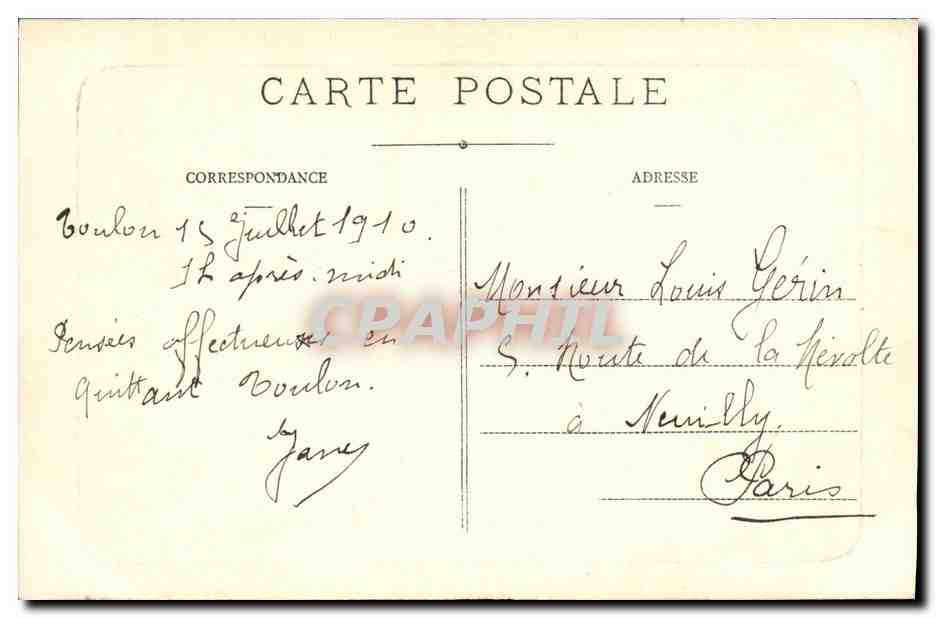 CARTE POSTALE
CORRESPONDANCE
Toulon 15 Juillet 1910.
1h après-midi
Pensées affectueuses en
quittant Toulon.
ADRESSE
Monsieur Louis Gérin
5. Route de la Révolte
à Neuilly.
Paris
CPAPHIL